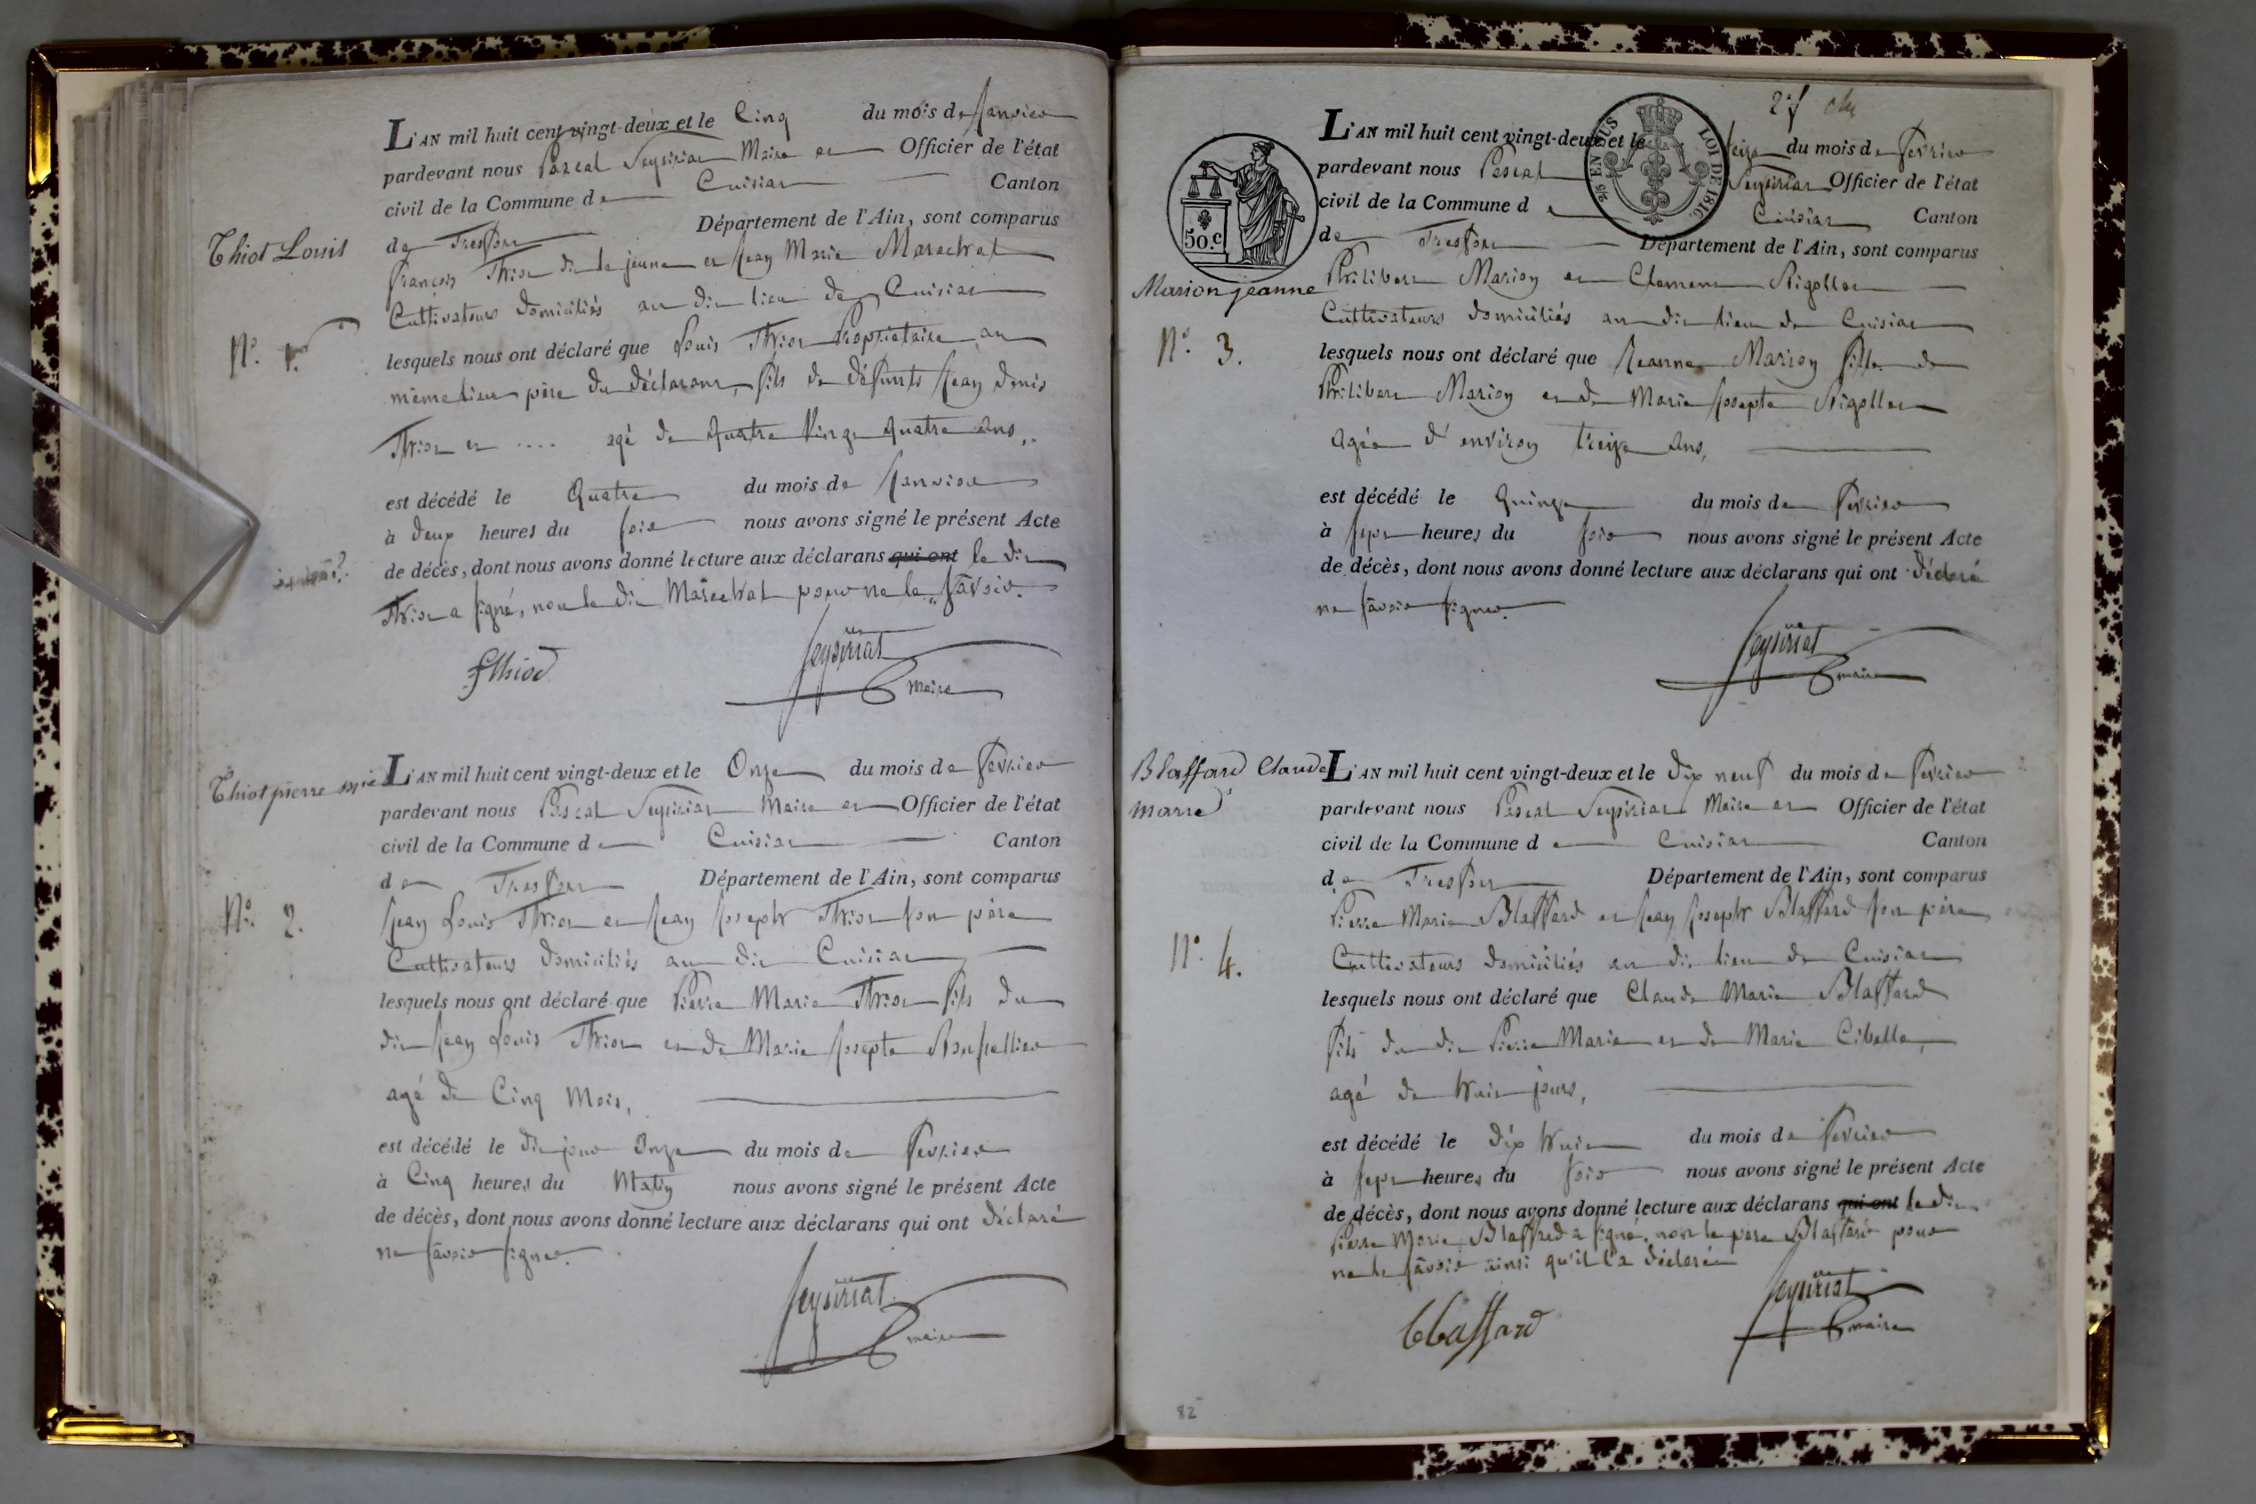 L'AN mil huit cent vingt-deux et le Cinq du mois de Janvier
pardevant nous Pascal Seysiriat Maire et Officier de l'état
civil de la Commune de Cuisiat Canton
de Treffort Département de l'Ain, sont comparus
Thiot Louis
françois Thiot dit le jeune et Jean Marie Marechal
Cultivateurs domiciliés au dit lieu de Cuisiat
N.° 1.
lesquels nous ont déclaré que Louis Thiot Propriétaire au
même lieu père du déclarant, fils de défunts Jean Denis
Thiot et .... agé de Quatre Vingt Quatre ans,.
est décédé le Quatre du mois de Janvier
à Deux heures du soir nous avons signé le présent Acte
de décès, dont nous avons donné lecture aux déclarans qui ont le dit
Thiot a signé, non le dit Maréchal pour ne le savoir.
fthiod
Seysiriat
maire
L'AN mil huit cent vingt-deux et le Onze du mois de fevrier
Thiot pierre mie
pardevant nous Pascal Seysiriat Maire et Officier de l'état
civil de la Commune de Cuisiat Canton
de Treffort Département de l'Ain, sont comparus
N.° 2.
Jean Louis Thiot et Jean Joseph Thiot son père
Cultivateurs domiciliés au dit Cuisiat
lesquels nous ont déclaré que Pierre Marie Thiot fils du
dit Jean Louis Thiot et de Marie Josepte
agé de Cinq Mois,
est décédé le dit jour Onze du mois de fevrier
à Cinq heures du Matin nous avons signé le présent Acte
de décès, dont nous avons donné lecture aux déclarans qui ont déclaré
ne savoir signer.
Seysiriat
maire
2
EN SUS LOI DE 1816.
50.c
L'AN mil huit cent vingt-deux et le seize du mois de fevrier
pardevant nous Pascal Seysiriat Officier de l'état
civil de la Commune de Cuisiat Canton
de Treffort Département de l'Ain, sont comparus
Marion jeanne
Philibert Marion et Clement Rigollet
Cultivateurs domiciliés au dit lieu de Cuisiat
N.° 3.
lesquels nous ont déclaré que Jeanne Marion fille de
Philibert Marion et de Marie Josepte Rigollet
agée d'environ treize ans,
est décédé le Quinze du mois de fevrier
à sept heures du soir nous avons signé le présent Acte
de décès, dont nous avons donné lecture aux déclarans qui ont déclaré
ne savoir signer.
Seysiriat
maire
Blaffard Claude
marie
L'AN mil huit cent vingt-deux et le dix neuf du mois de fevrier
pardevant nous Pascal Seysiriat Maire et Officier de l'état
civil de la Commune de Cuisiat Canton
de Treffort Département de l'Ain, sont comparus
Pierre Marie Blaffard et Jean Joseph Blaffard son père
N.° 4.
Cultivateurs domiciliés au dit lieu de Cuisiat
lesquels nous ont déclaré que Claude Marie Blaffard
fils du dit Pierre Marie et de Marie Cibelle,
agé de huit jours,
est décédé le dix huit du mois de fevrier
à sept heures du soir nous avons signé le présent Acte
de décès, dont nous avons donné lecture aux déclarans qui ont le dit
Pierre Marie Blaffard a signé, non le père Blaffard pour
ne le savoir ainsi qu'il l'a déclaré
bLaffard
Seysiriat
maire
82